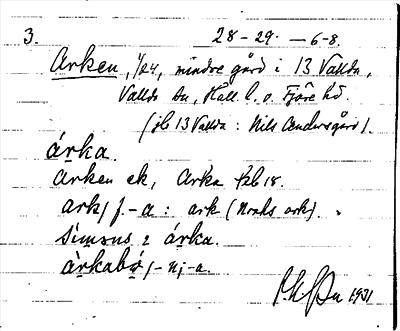 3. 28-29. — 6-8.
Arken, 1/24, mindre gård i 13 Vallda,
Vallda sn, Hall. l. o. Fjäre hd.
(jb 13 Vallda: Nils Andersgård).
árka.
Arken ek, Arka fzb 18.
ark, f. -a: ark (Noaks ark).
simsus i árka.
árkabó, -n, -a.
1931